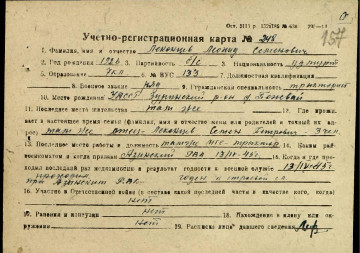 Учетно-регистрационная карта № 218
157
1. Фамилия, имя и отчество Леконцев Леонид Семенович
2. Год рождения 1926 3. Партийность б/п 4. Национальность удмурт
5. Образование 7 кл 6. № ВУС 133 7. Должностная квалификация
8. Военное звание 9. Гражданская специальность тракторист
10. Место рождения УАССР р-он д.
11. Последнее место жительства там же 12. Где прожи-
вает в настоящее время семья (фамилия, имя и отчество жены или родителей и точный их ад-
рес) там же отец- Леконцев Семен Петрович
13. Последнее место работы и должность тракторист 14. Каким рай-
военкоматом и когда призван РВК 13/IV-45г. 15. Когда и где про-
ходил последний раз медкомиссию и результат годности к военной службе 13/IV-45г
при РВК годен к строевой сл.
16. Участие в Отечественной войне (в составе какой последней части и качестве кого, когда)
нет
17. Ранения и контузии нет 18. Нахождение в плену или ок-
ружении нет 19. Расписка лица давшего сведения